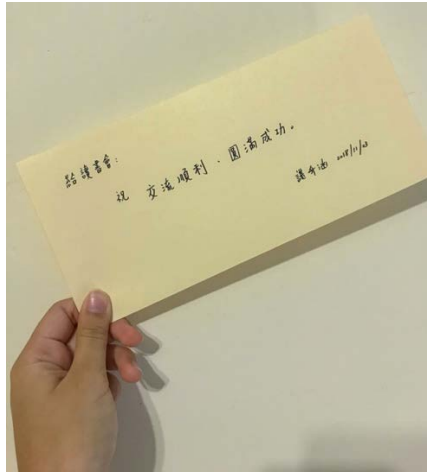 給讀書會:
祝 交流順利、圓滿成功。
2018/11/03